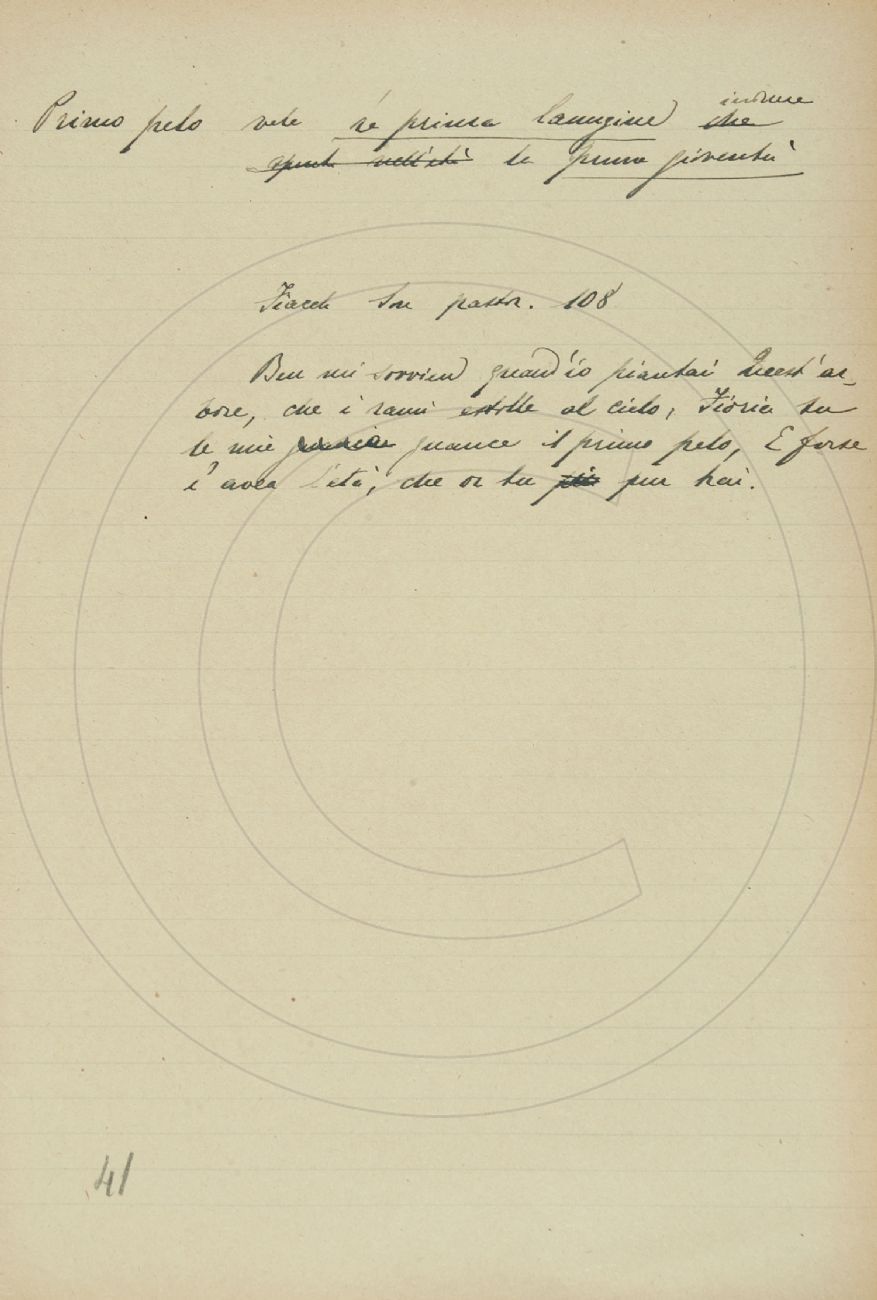 Primo pelo vale la prima lanugine indica
che
spunta nell'età la prima gioventù
Fiacch Son pastor. 108
Ben mi sovvien quand'io piantai Quest'ar-
bore, che i rami estolle al cielo, Fioria su
le mie guancie guance il primo pelo, E forse
i' avea l'età, che or tu più pur hai.
41